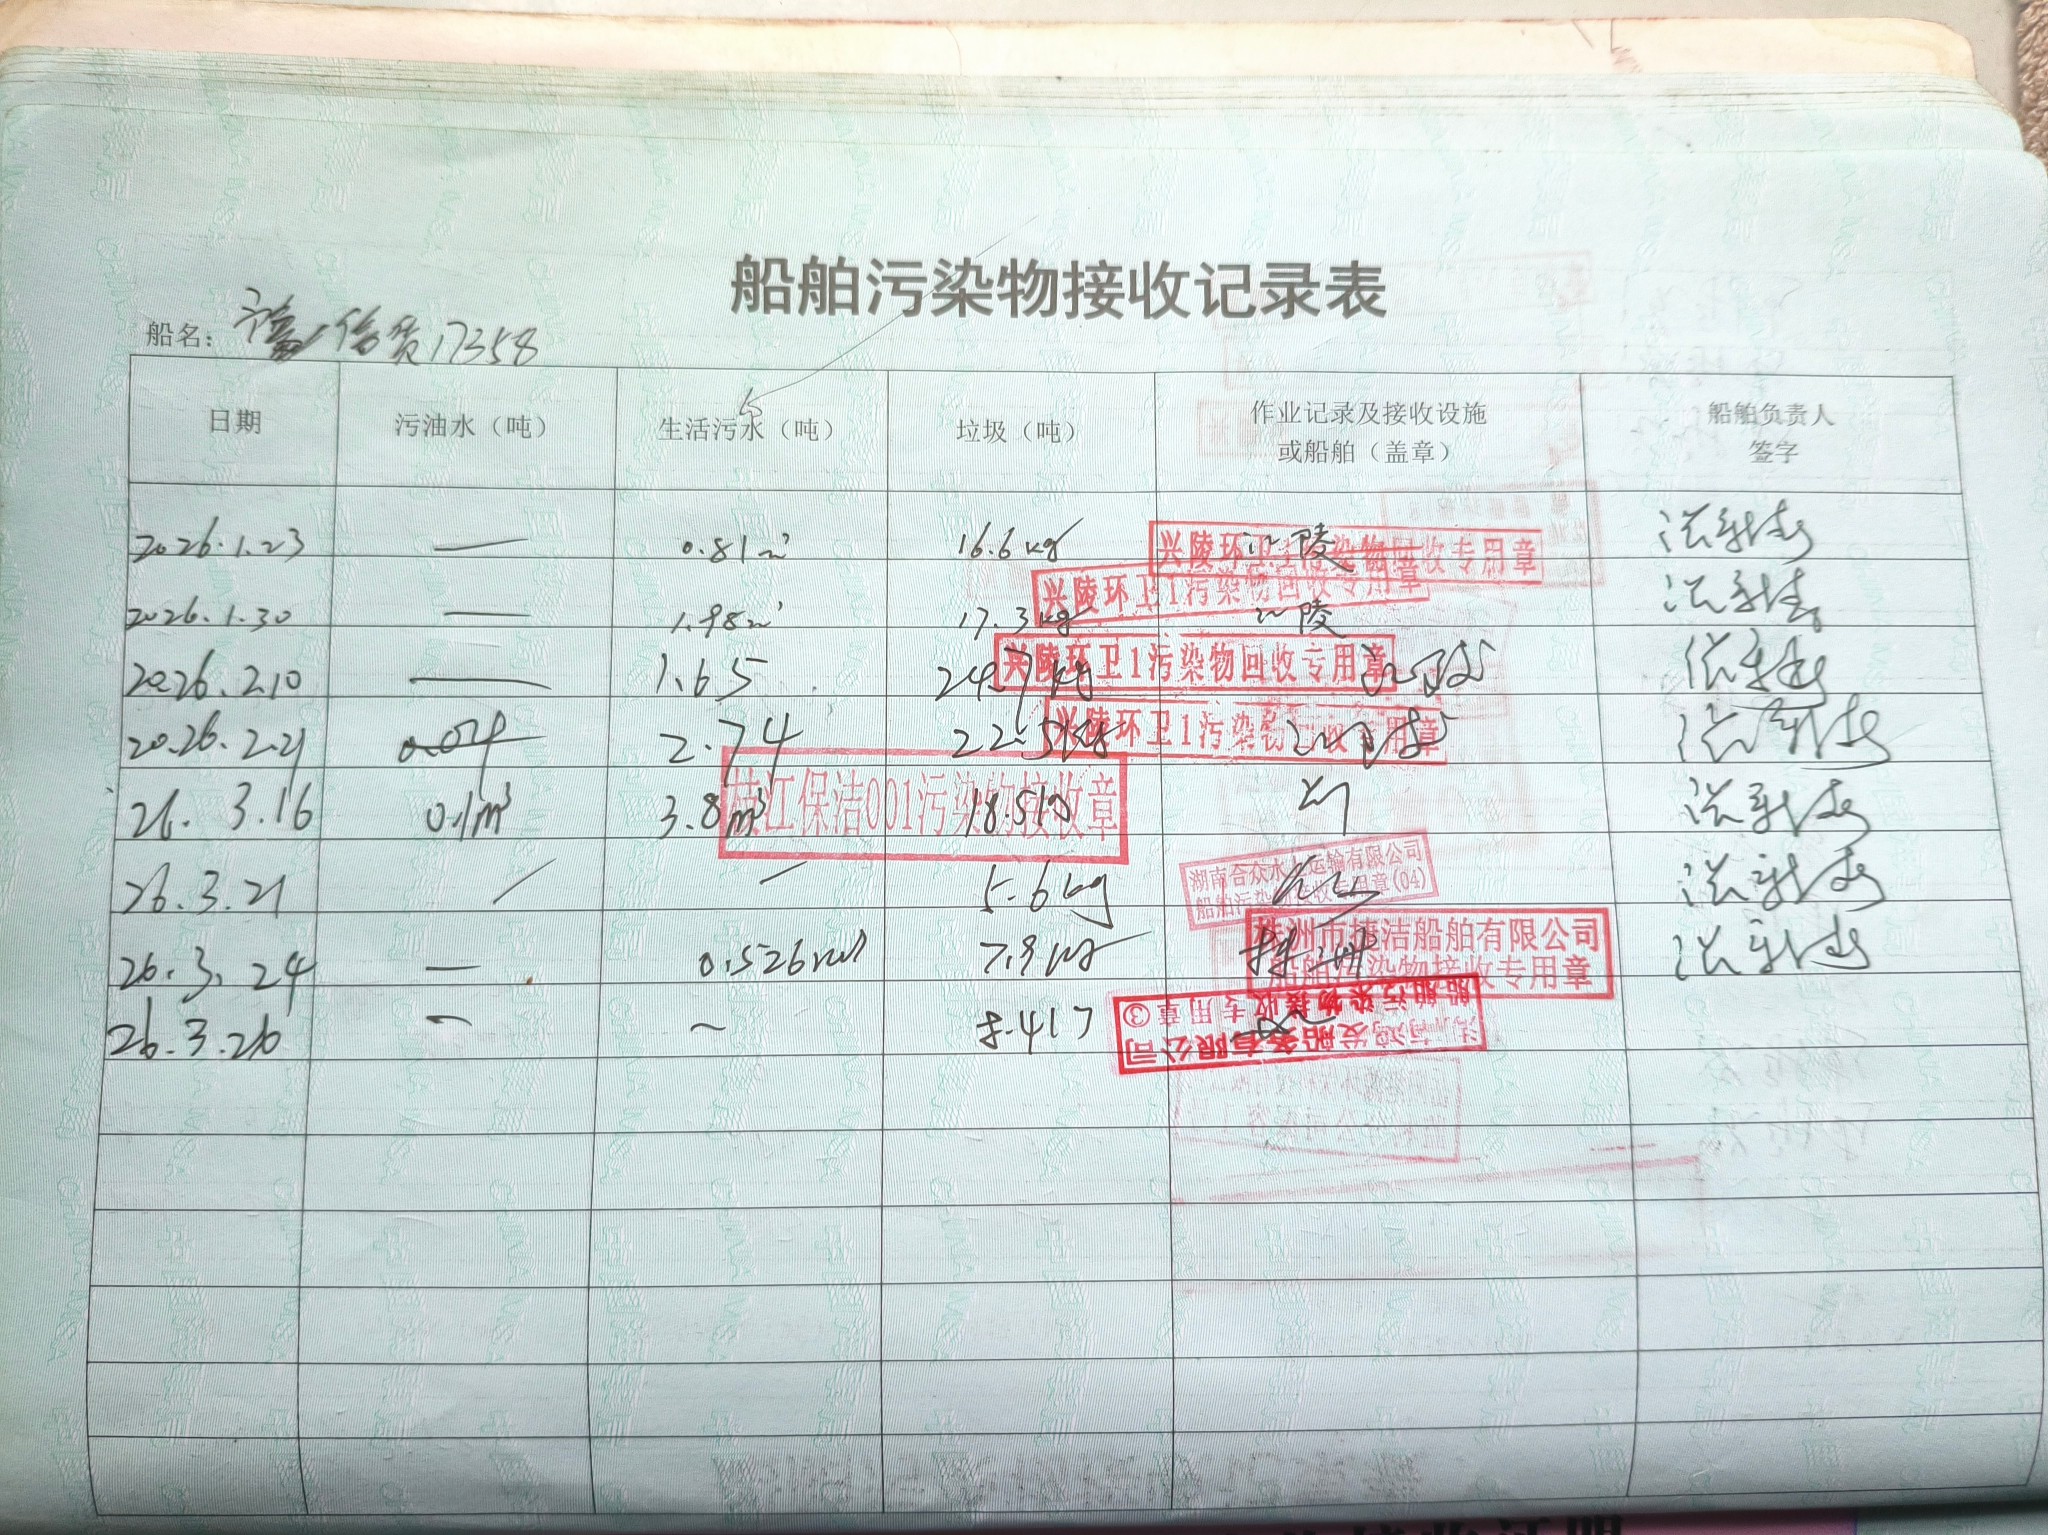 船舶污染物接收记录表
船名： 信货17358
日期 污油水（吨） 生活污水（吨） 垃圾（吨） 作业记录及接收设施 船舶负责人
或船舶（盖章） 签字
2026.1.23 — 0.81m³ 16.6kg 江陵
兴陵环卫1污染物回收专用章
兴陵环卫1污染物回收专用章
2026.1.30 — 1.98m³ 17.3kg 江陵
兴陵环卫1污染物回收专用章
2026.2.10 — 1.65 24.7kg 江陵
兴陵环卫1污染物回收专用章
2026.2.21 0.04 2.74 22.5kg 江陵
枝江保洁001污染物接收章
26.3.16 0.1m³ 3.8m³ 18.5kg
湖南合众水上运输有限公司
船舶污染物接收专用章(04)
26.3.21 / — 5.6kg
株洲市捷洁船舶有限公司
船舶污染物接收专用章
26.3.24 — 0.526m³ 7.9kg 株洲
船舶污染物接收专用章③
船务有限公司
26.3.26 — ~ 8.417